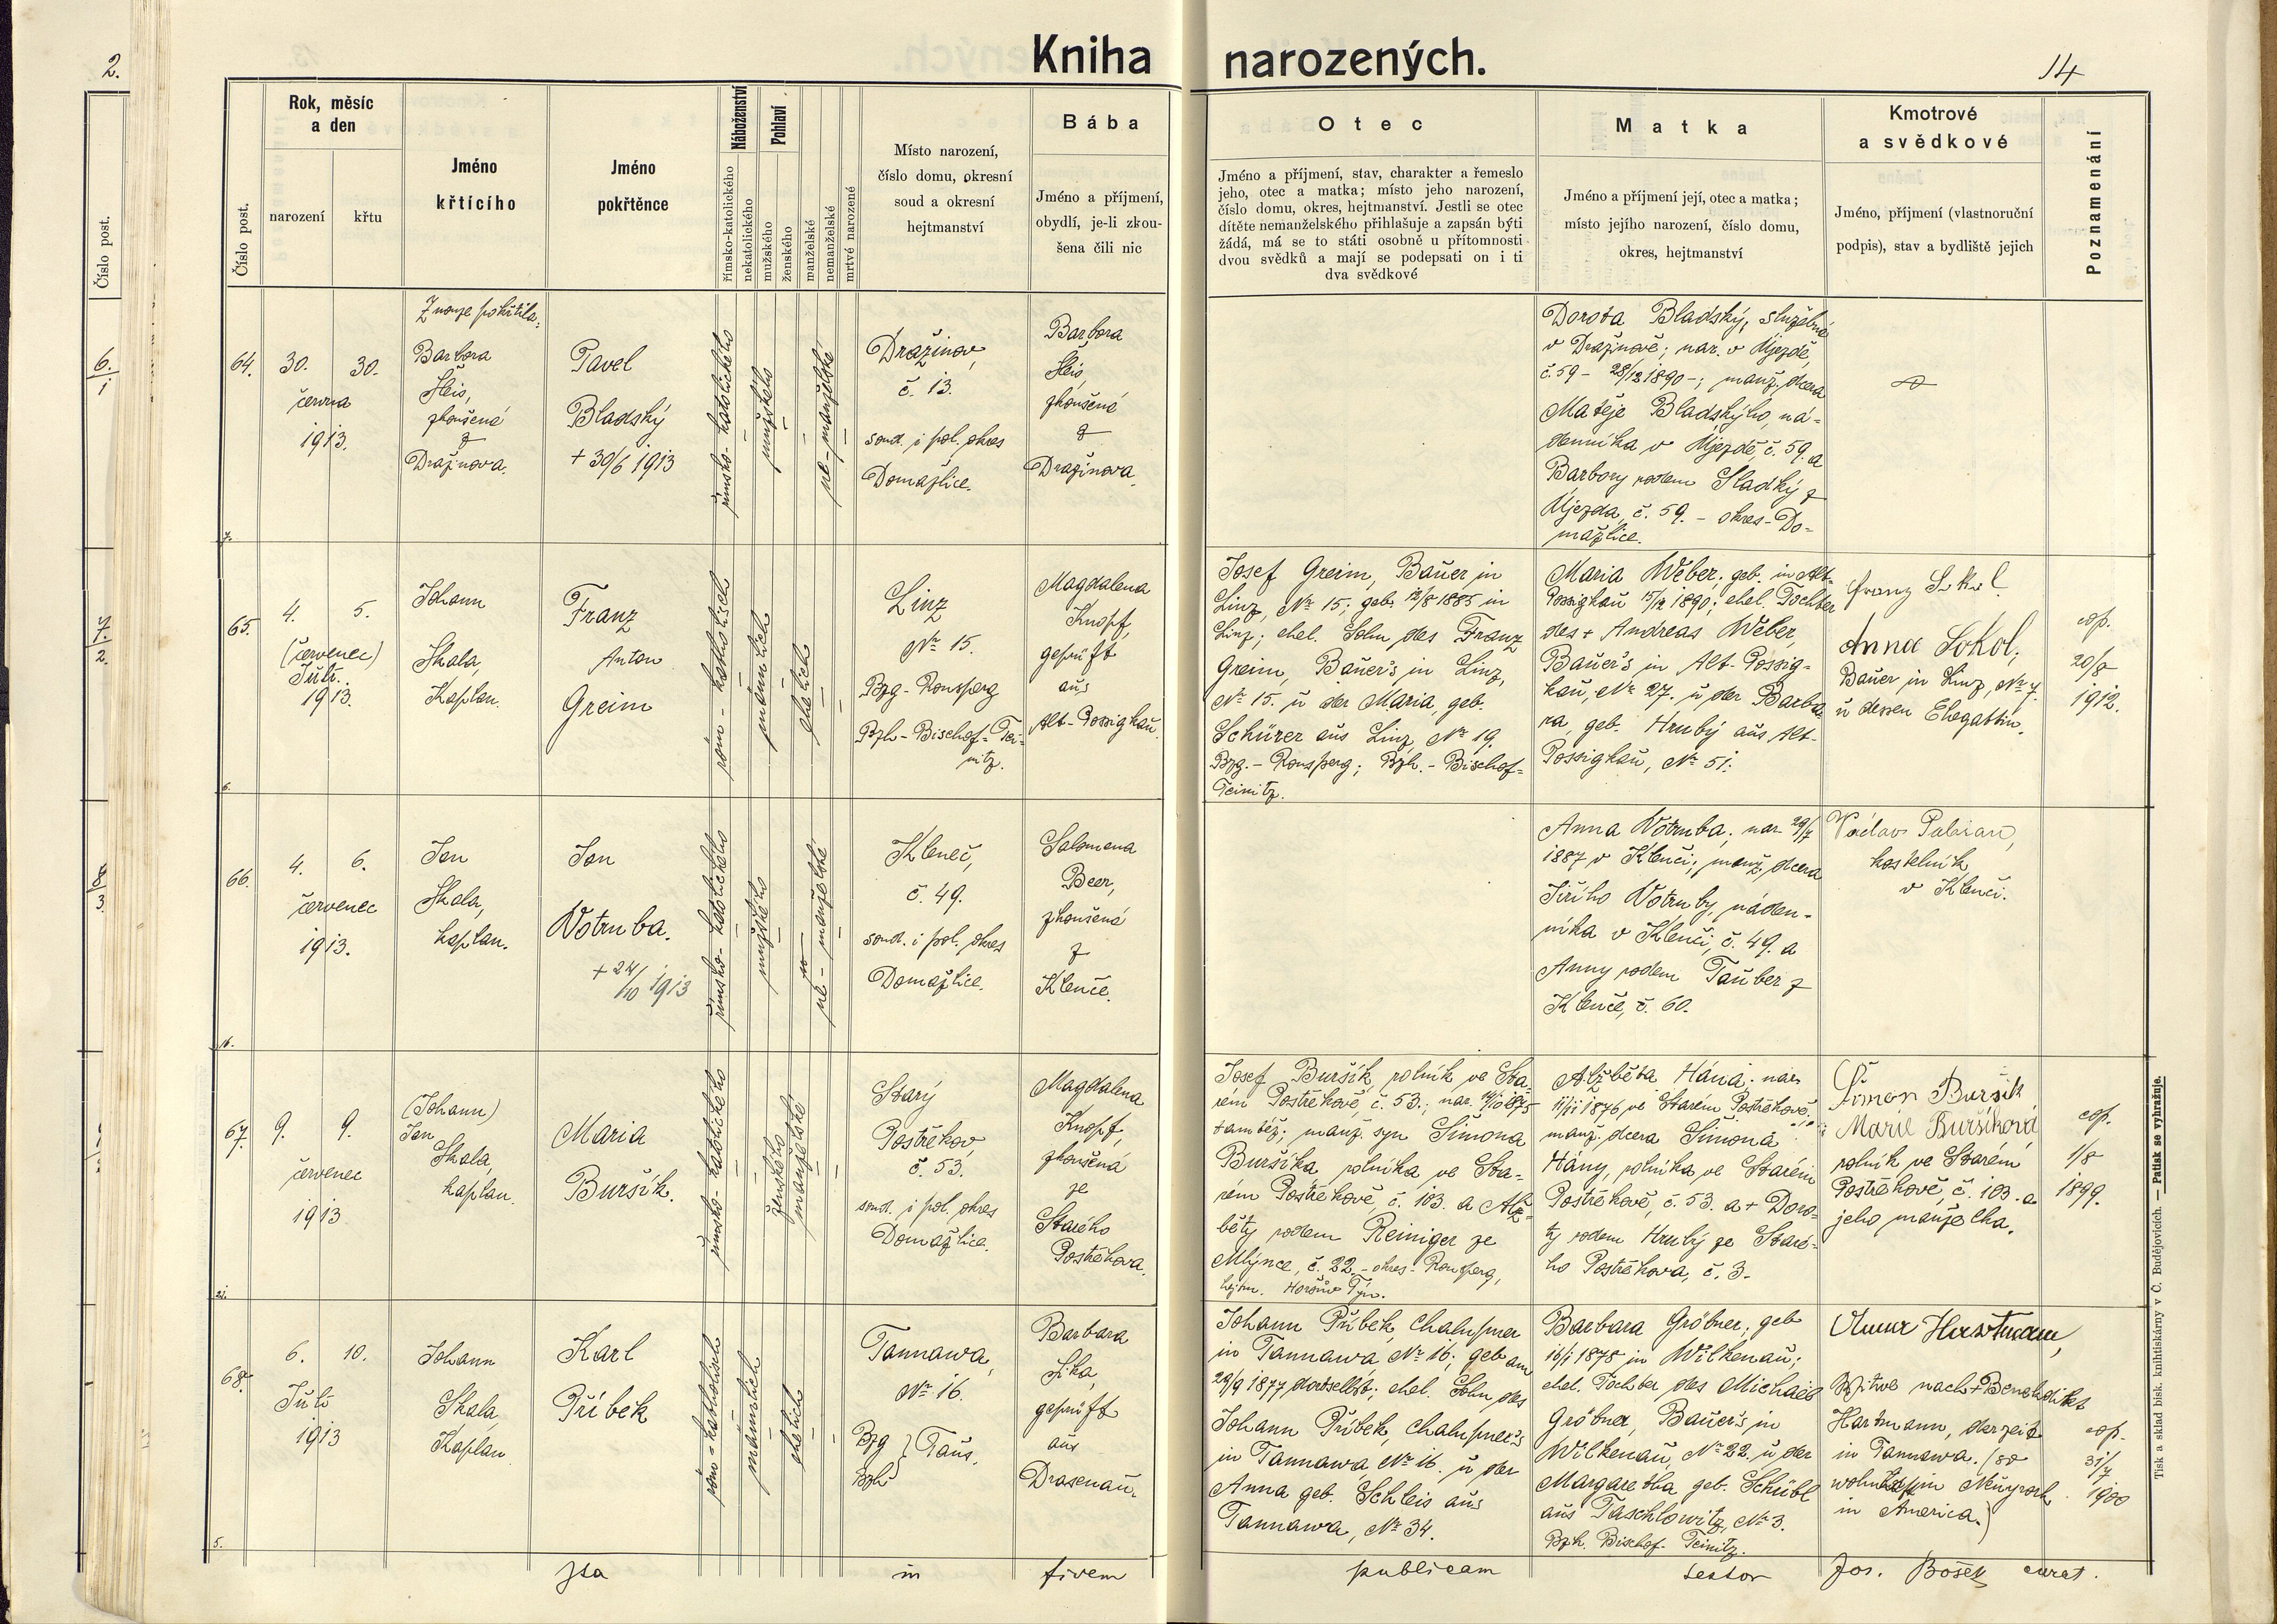 2.
Kniha narozených.
14
Číslo post.
6./1
7./2.
8./3.
Číslo post.
Rok, měsíc
a den
narození
křtu
Jméno
křtícího
Jméno
pokřtěnce
Náboženství
římsko-katolického
nekatolického
Pohlaví
mužského
ženského
manželské
nemanželské
mrtvé narozené
Místo narození,
číslo domu, okresní
soud a okresní
hejtmanství
Bába
Jméno a příjmení,
obydlí, je-li zkou-
šena čili nic
Otec
Jméno a příjmení, stav, charakter a řemeslo
jeho, otec a matka; místo jeho narození,
číslo domu, okres, hejtmanství. Jestli se otec
dítěte nemanželského přihlašuje a zapsán býti
žádá, má se to státi osobně u přítomnosti
dvou svědků a mají se podepsati on i ti
dva svědkové
Matka
Jméno a příjmení její, otec a matka;
místo jejího narození, číslo domu,
okres, hejtmanství
Kmotrové
a svědkové
Jméno, příjmení (vlastnoruční
podpis), stav a bydliště jejich
Poznamenání
64.
30. 30.
června
1913.
Z nouze pokřtila:
Barbora
Heis,
zkoušená
z
Dražinova.
Pavel
Bladský
+ 30/6 1913
římsko-katolického
mužského
ne-manželské
Dražinov,
č. 13.
soud. i pol. okres
Domažlice.
Barbora
Heis,
zkoušená
z
Dražinova.
Dorota Bladský, služebná
v Dražinově; nar. v Újezdě,
č. 59 - 28/12 1890 -; manž. dcera
Matěje Bladskýho, ná-
denníka v Újezdě, č. 59. a
Barbory rodem Sladký z
Újezda, č. 59. - okres - Do-
mažlice.
7.
65.
4. 5.
(červenec)
Juli.
1913.
Johann
Skala,
Kaplan.
Franz
Anton
Greim
röm-katholisch
männlich
ehelich
Linz
No 15.
Bzg-Ronsperg
Bzh-Bischof-Tei-
nitz.
Magdalena
Knopf,
geprüft
aus
Alt-Possigkau.
Josef Greim, Bauer in
Linz, No 15; geb. 12/8 1885 in
Linz; ehel. Sohn des Franz
Greim, Bauer's in Linz,
No 15. u der Maria, geb.
Schürer aus Linz, No 19.
Bzg.-Ronsperg; Bzh.-Bischof-
Teinitz.
Maria Weber; geb. in Alt-
Possigkau 15/12 1890; ehel. Tochter
des + Andreas Weber,
Bauer's in Alt-Possig-
kau, No 27. u der Barba-
ra, geb. Hruby aus Alt-
Possigkau, No 51.
Franz Sokol
Anna Sokol,
Bauer in Linz, No 7.
u dessen Ehegattin.
cop.
20/8
1912.
6.
66.
4. 6.
červenec
1913.
Jan
Skala,
kaplan.
Jan
Votruba.
+ 24/10 1913
římsko-katolického
mužského
ne-manželské
Kleneč,
č. 49.
soud. i pol. okres
Domažlice.
Salomena
Beer,
zkoušená
z
Klenče.
Anna Votruba; nar. 29/7
1887 v Klenči; manž. dcera
Jiřího Votruby, náden-
níka v Klenči, č. 49. a
Anny rodem Tauber z
Klenče, č. 60.
Václav
kostelník
v Klenči.
16.
67.
9. 9.
červenec
1913
(Johann)
Jan
Skala,
kaplan.
Maria
Buršík.
římsko-katolického
ženského
manželské
Starý
Postřekov,
č. 53.
soud. i pol. okres
Domažlice.
Magdalena
Knopf,
zkoušená
ze
Starého
Postřekova.
Josef Buršík, rolník ve Sta-
rém Postřekově, č. 53.; nar. 1875
tamtéž; manž. syn Šimona
Buršíka, rolníka ve Sta-
rém Postřekově, č. 103. a Alž-
běty rodem Reiniger ze
Mlýnce, č. 22. - okres - Ronsperg,
hejtm. Horšův Týn.
Alžběta Hána; nar.
11/11 1876 ve Starém Postřekově;
manž. dcera Šimona
Hány, rolníka ve Starém
Postřekově, č. 53. a + Doro-
ty rodem Hrubý ze Staré-
ho Postřekova, č. 3.
Šimon Buršík
Marie Buršíková
rolník ve Starém
Postřekově, č. 103. a
jeho manželka.
cop.
1/8
1899.
21.
68.
6. 10.
Juli
1913
Johann
Skala,
Kaplan.
Karl
Přibek
röm-katholisch
männlich
ehelich
Tannawa,
No 16.
Bzg
Bzh } Taus.
Barbara
Sika,
geprüft
aus
Drasenau.
Johann Přibek, Chalupner
in Tannawa No 16; geb am
29/9 1877 dortselbst; ehel. Sohn des
Johann Přibek, Chalupner's
in Tannawa No 16. u der
Anna geb. Schleis aus
Tannawa, No 34.
Barbara Gröbner; geb
16/1 1878 in Wilkenau;
ehel. Tochter des Michael
Gröbner, Bauer's in
Wilkenau, No 22. u der
Margaretha geb. Schübl
aus Taschlowitz, No 3.
Bzh. Bischof-Teinitz.
Anna Hartmann,
Witwe nach + Benedikt
Hartmann, derzeit
in Tannawa.
in Neuyork
in America.)
cop.
31/7
1900
5.
Ita in fidem publicam testor Jos. Bošek curat.
Tisk a sklad bisk. knihtiskárny v Č. Budějovicích. — Patisk se vyhražuje.